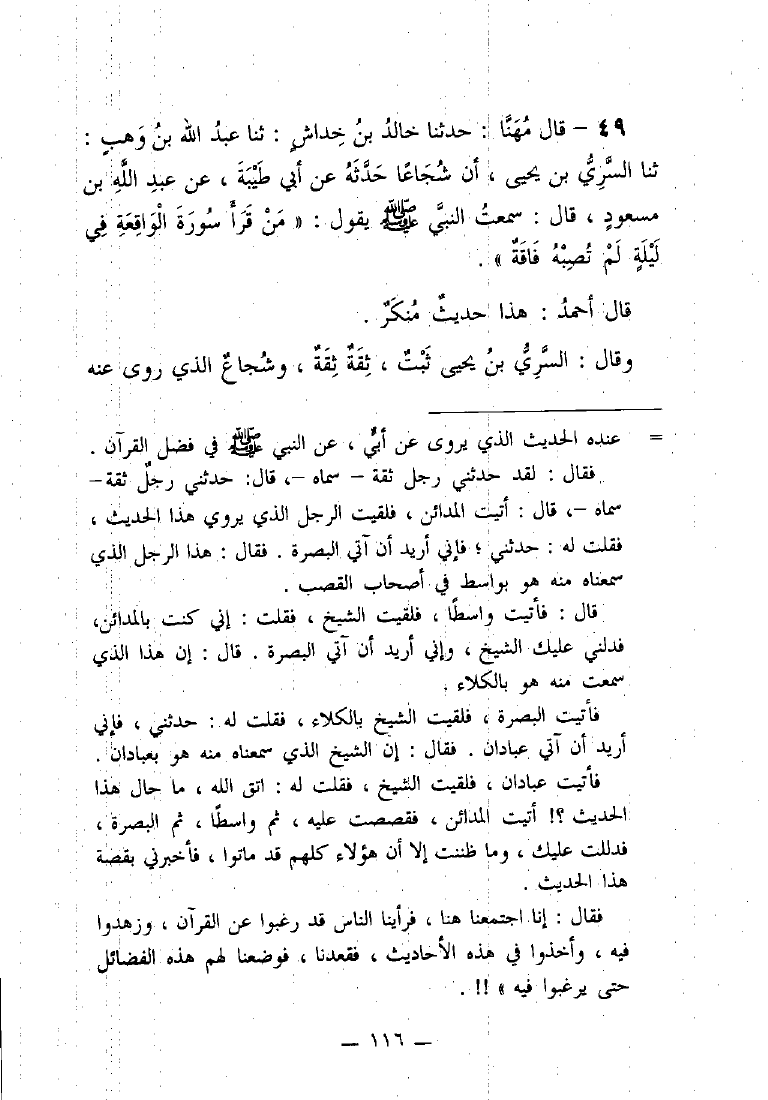 ٤٩ – قال مُهَنَّا : حدثنا خالدُ بنُ خِداشٍ : ثنا عبدُ الله بنُ وَهبٍ :
ثنا السَّرِيُّ بن يحيى ، أن شُجَاعًا حَدَّثَهُ عن أبي طَيْبَةَ ، عن عبدِ اللَّهِ بن
مسعودٍ ، قال : سمعتُ النبيَّ ﷺ يقول : « مَنْ قَرَأَ سُورَةَ الْوَاقِعَةِ فِي
لَيْلَةٍ لَمْ تُصِبْهُ فَاقَةٌ » .
قال أحمدُ : هذا حديثٌ مُنكَرٌ .
وقال : السَّرِيُّ بنُ يحيى ثَبْتٌ ، ثِقَةٌ ثِقَةٌ ، وشُجاعٌ الذي روى عنه
= عنده الحديث الذي يروى عن أبيٌّ ، عن النبي ﷺ في فضل القرآن .
فقال : لقد حدثني رجل ثقة – سماه –، قال: حدثني رجلٌ ثقة–
سماه –، قال : أتيت المدائن ، فلقيت الرجل الذي يروي هذا الحديث ،
فقلت له : حدثني ؛ فإني أريد أن آتي البصرة . فقال : هذا الرجل الذي
سمعناه منه هو بواسط في أصحاب القصب .
قال : فأتيت واسطًا ، فلقيت الشيخ ، فقلت : إني كنت بالمدائن،
فدلني عليك الشيخ ، وإني أريد أن آتي البصرة . قال : إن هذا الذي
سمعت منه هو بالكلاء .
فأتيت البصرة ، فلقيت الشيخ بالكلاء ، فقلت له : حدثني ، فإني
أريد أن آتي عبادان . فقال : إن الشيخ الذي سمعناه منه هو بعبادان .
فأتيت عبادان ، فلقيت الشيخ ، فقلت له : اتق الله ، ما حال هذا
الحديث ؟! أتيت المدائن ، فقصصت عليه ، ثم واسطًا ، ثم البصرة ،
فدللت عليك ، وما ظننت إلا أن هؤلاء كلهم قد ماتوا ، فأخبرني بقصة
هذا الحديث .
فقال : إنا اجتمعنا هنا ، فرأينا الناس قد رغبوا عن القرآن ، وزهدوا
فيه ، وأخذوا في هذه الأحاديث ، فقعدنا ، فوضعنا لهم هذه الفضائل
حتى يرغبوا فيه » !! .
– ١١٦ –